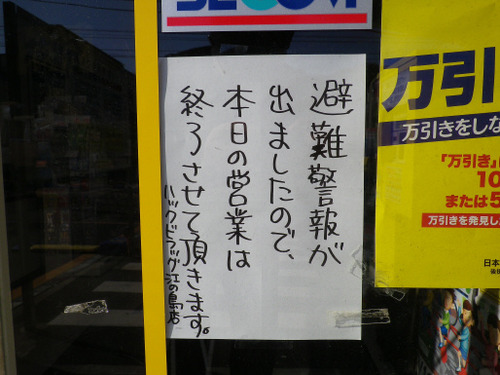 SECOM
避難警報が
出ましたので、
本日の営業は
終了させて頂きます。
ハックドラッグ江の島店
万引
万引きをしな
「万引き」
10
または5
万引きを発見し
日本